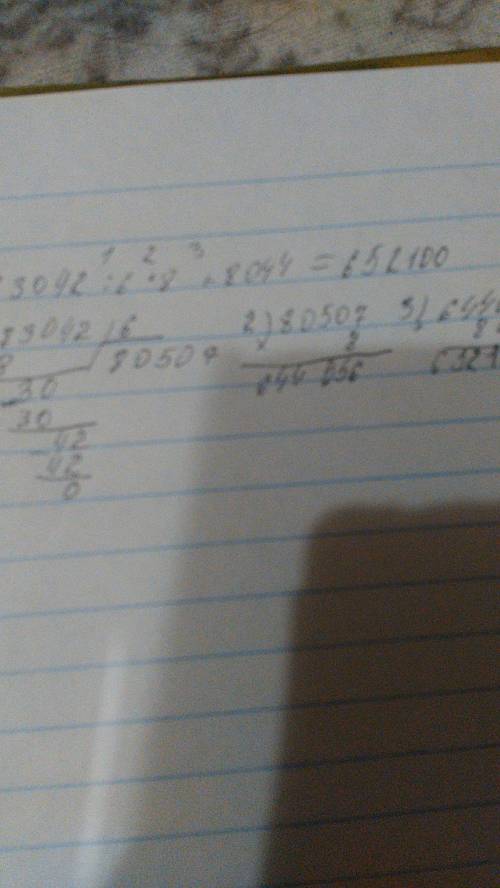 1 2 3
3042 : 6 · 8 + 8044 = 652100
3042 6
80507
30
30
42
42
0
2) 80507
8
644 056
3) 644
8